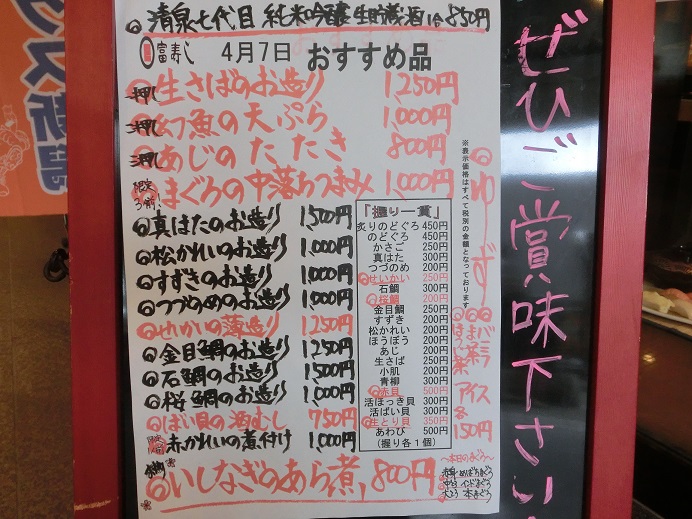 清泉七代目 純米吟醸 生貯蔵酒 1合 850円
富寿し 4月7日 おすすめ品
一押し 生さばのお造り 1,250円
二押し 幻魚の天ぷら 1,000円
三押し あじのたたき 800円
限定3前! まぐろの中落ちつまみ 1,000円
真はたのお造り 1,500円
松かれいのお造り 1,000円
すずきのお造り 1,000円
つづのめのお造り 1,000円
せいかいの薄造り 1,250円
金目鯛のお造り 1,250円
石鯛のお造り 1,500円
桜鯛のお造り 1,000円
ばい貝の酒むし 750円
赤かれいの煮付け 1,000円
いしなぎのあら煮 800円
※表示価格はすべて税別の金額となっております
「握り一貫」
炙りのどぐろ 450円
のどぐろ 450円
かさご 250円
真はた 300円
つづのめ 200円
せいかい 250円
石鯛 300円
桜鯛 200円
金目鯛 250円
すずき 200円
松かれい 200円
ほうぼう 200円
あじ 200円
生さば 250円
小肌 200円
青柳 300円
赤貝 500円
活ほっき貝 300円
活ばい貝 300円
生とり貝 350円
あわび 500円
(握り各1個)
ゆず
バニラ
アイス
各150円
~本日のまぐろ~
ぜひご賞味下さい
クス新潟